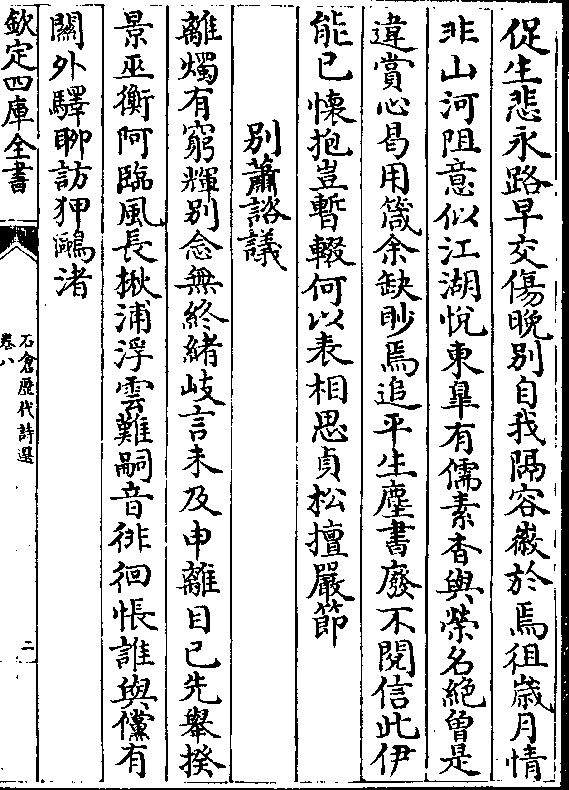 促生悲永路早交傷晚別自我隔容徽於焉徂歳月情
非山河阻意似江湖悅東臯有儒素杳與榮名絶曽是
違賞心曷用箴余缺眇焉追平生塵書廢不閱信此伊
能已懷抱豈暫輟何以表相思貞松擅嚴節
別蕭諮議
離燭有窮輝別念無終緒岐言未及申離目已先舉揆
景巫衡阿臨風長楸浦浮雲難嗣音徘徊悵誰與儻有
關外驛聊訪狎鷗渚
欽定四庫全書
石倉歴代詩選
卷八
二